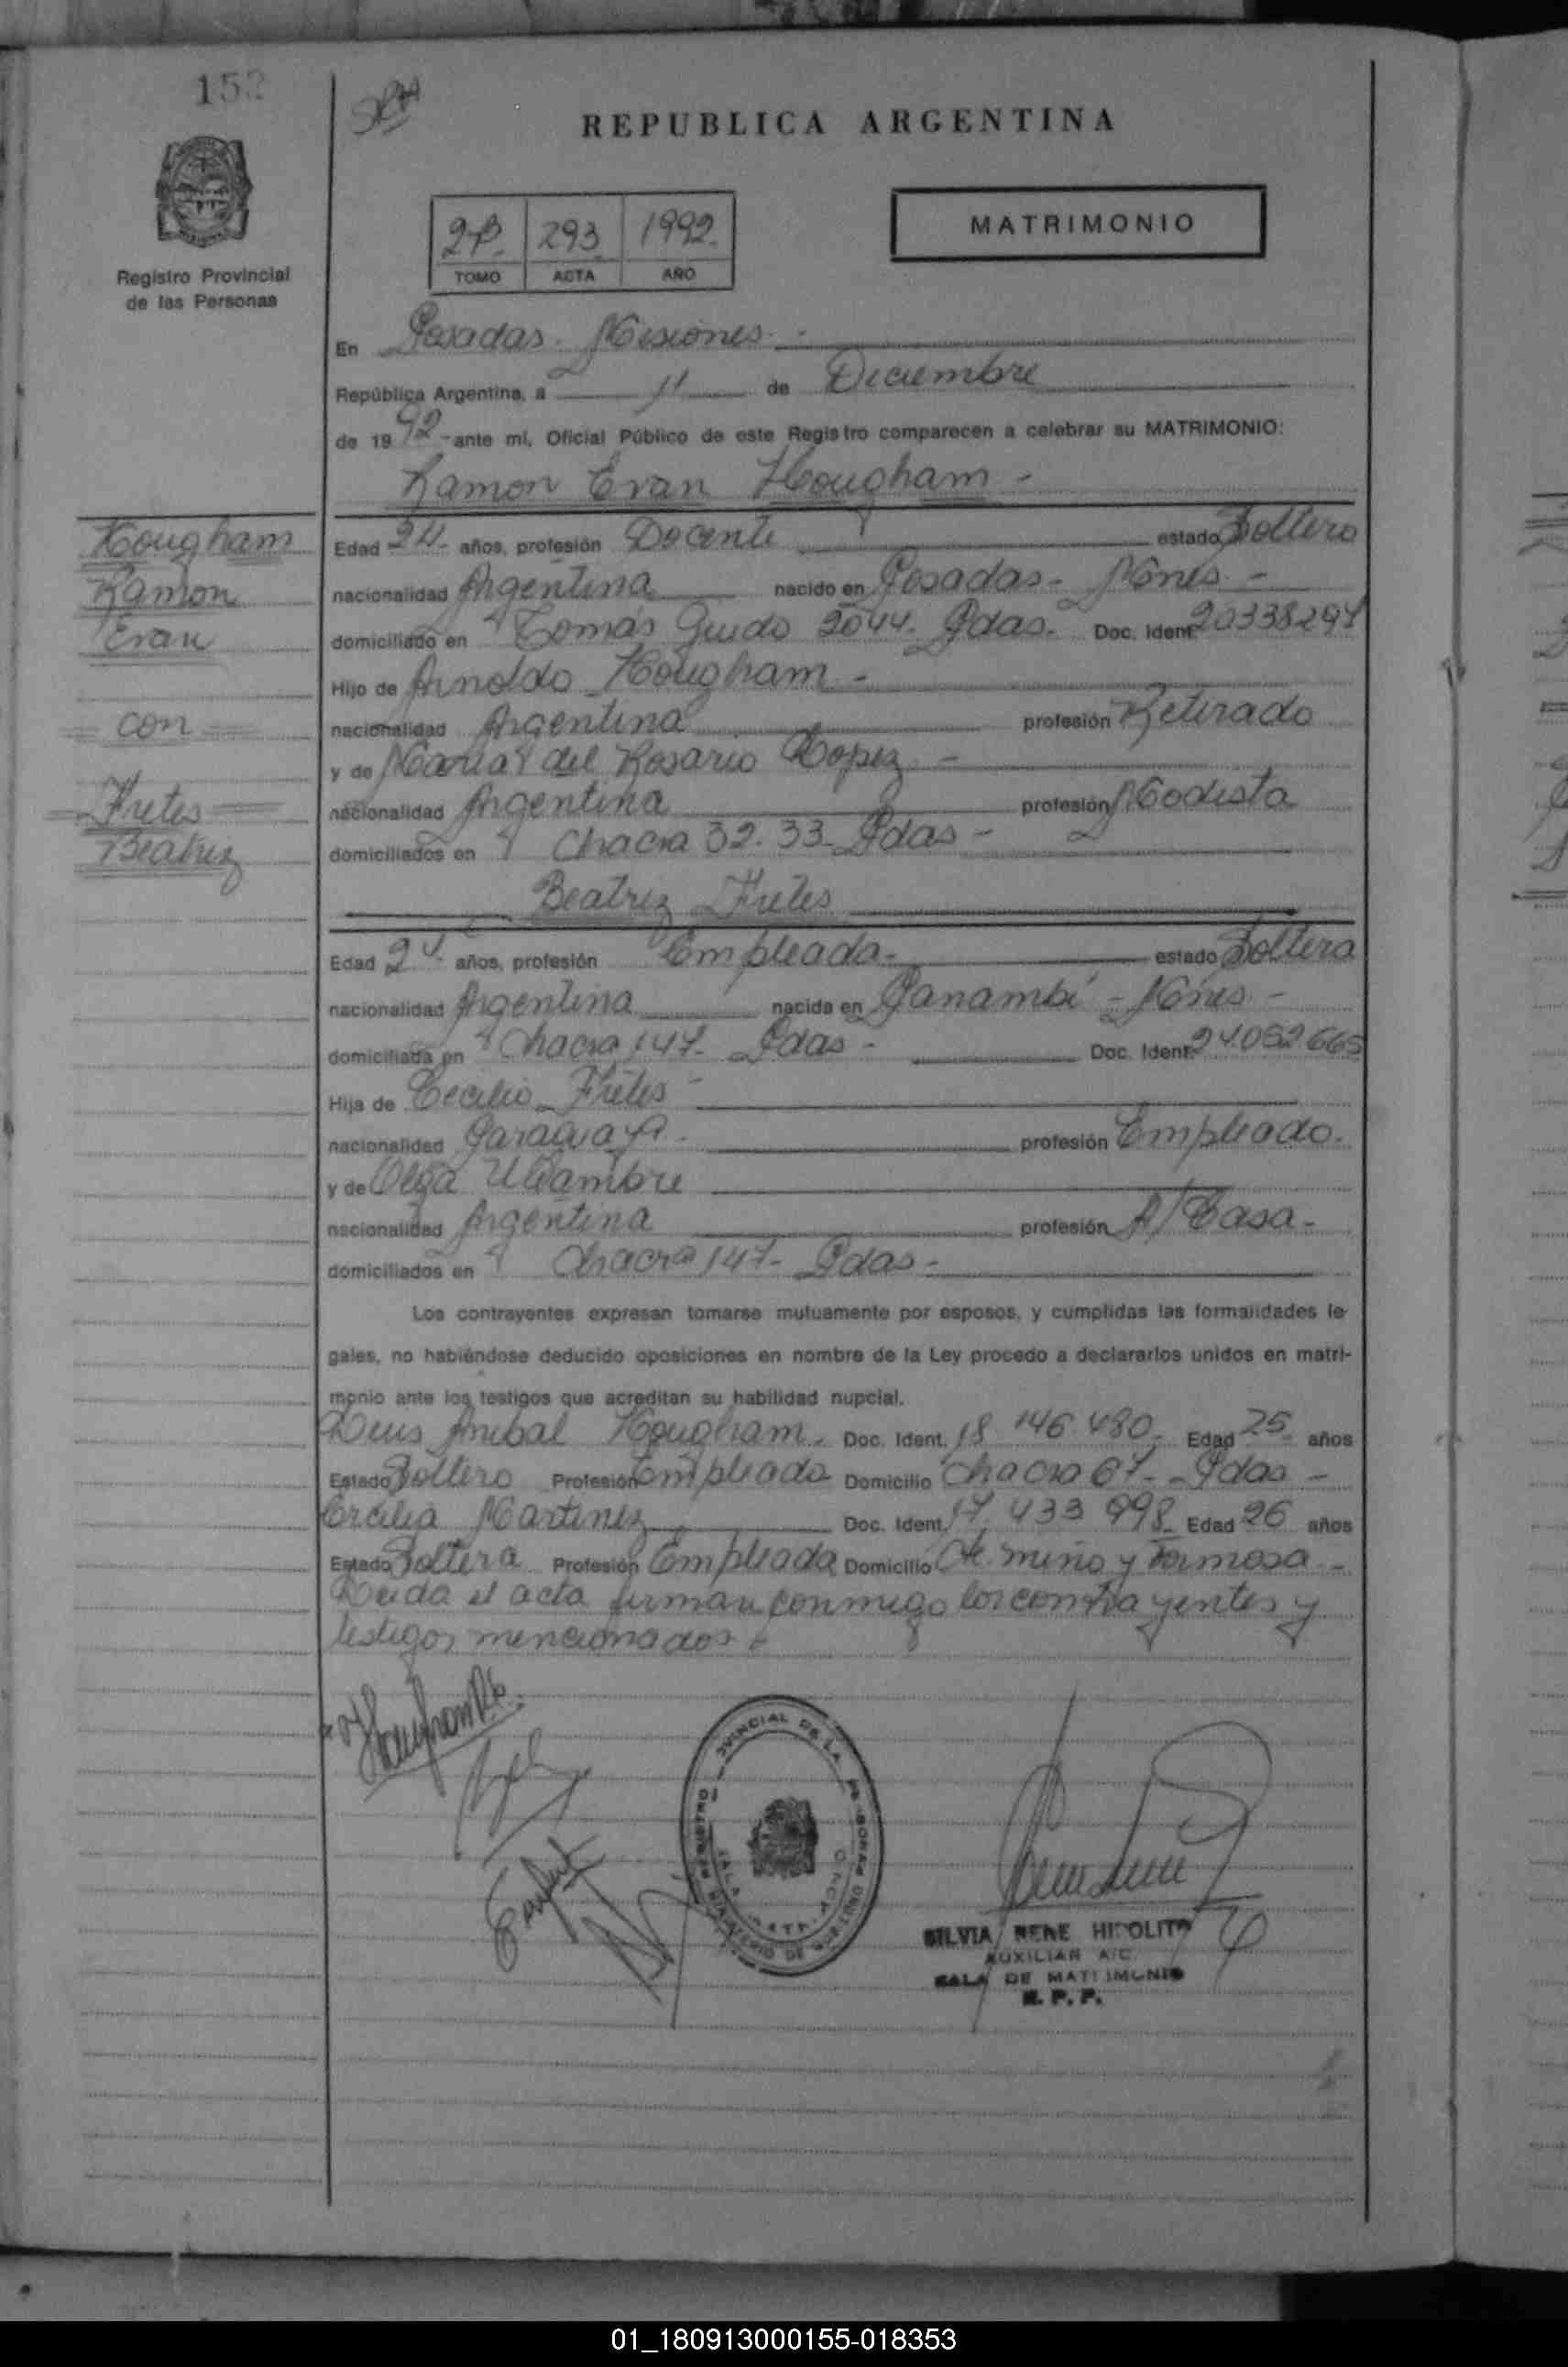 REPUBLICA ARGENTINA
MATRIMONIO
293 1992
TOMO ACTA AÑO
Registro Provincial
de las Personas
En Posadas - Misiones -
República Argentina, a 11 de Diciembre
de 1992 - ante mi, Oficial Público de este Registro comparecen a celebrar su MATRIMONIO:
Ramon Evan Hougham -
Hougham
Ramon
Evan
con
Fretes
Beatriz
Edad 24 - años, profesión Docente estado Soltero
nacionalidad Argentina nacido en Posadas - Mnes -
domiciliado en Tomás Guido 2044 - Pdas - Doc. Ident. 20338294
Hijo de Arnoldo Hougham -
nacionalidad Argentina profesión Retirado
y de Maria del Rosario Lopez -
nacionalidad Argentina profesión Modista
domiciliados en Chacra 32-33 - Pdas -
Beatriz Fretes
Edad 24 - años, profesión Empleada - estado Soltera
nacionalidad Argentina nacida en Panambí - Mnes -
domiciliada en Chacra 147 - Pdas - Doc. Ident. 24.052665
Hija de Cecilio Fretes -
nacionalidad Paraguaya - profesión Empleado.
y de Olga
nacionalidad Argentina profesión A/Casa -
domiciliados en Chacra 147 - Pdas -
Los contrayentes expresan tomarse mutuamente por esposos, y cumplidas las formalidades le-
gales, no habiéndose deducido oposiciones en nombre de la Ley procedo a declararlos unidos en matri-
monio ante los testigos que acreditan su habilidad nupcial.
Luis Anibal Hougham - Doc. Ident. 18 146 480 - Edad 25 - años
Estado Soltero Profesión Empleado Domicilio Chacra 67 - Pdas -
Martinez Doc. Ident. 17 433 998 - Edad 26 años
Estado Soltera Profesión Empleada Domicilio Miño y Formosa -
Leida el acta firman conmigo los contrayentes y
testigos mencionados -
SILVIA RENE HIPOLITO
AUXILIAR A/C
SALA DE MATRIMONIO
R.P.P.
01_180913000155-018353